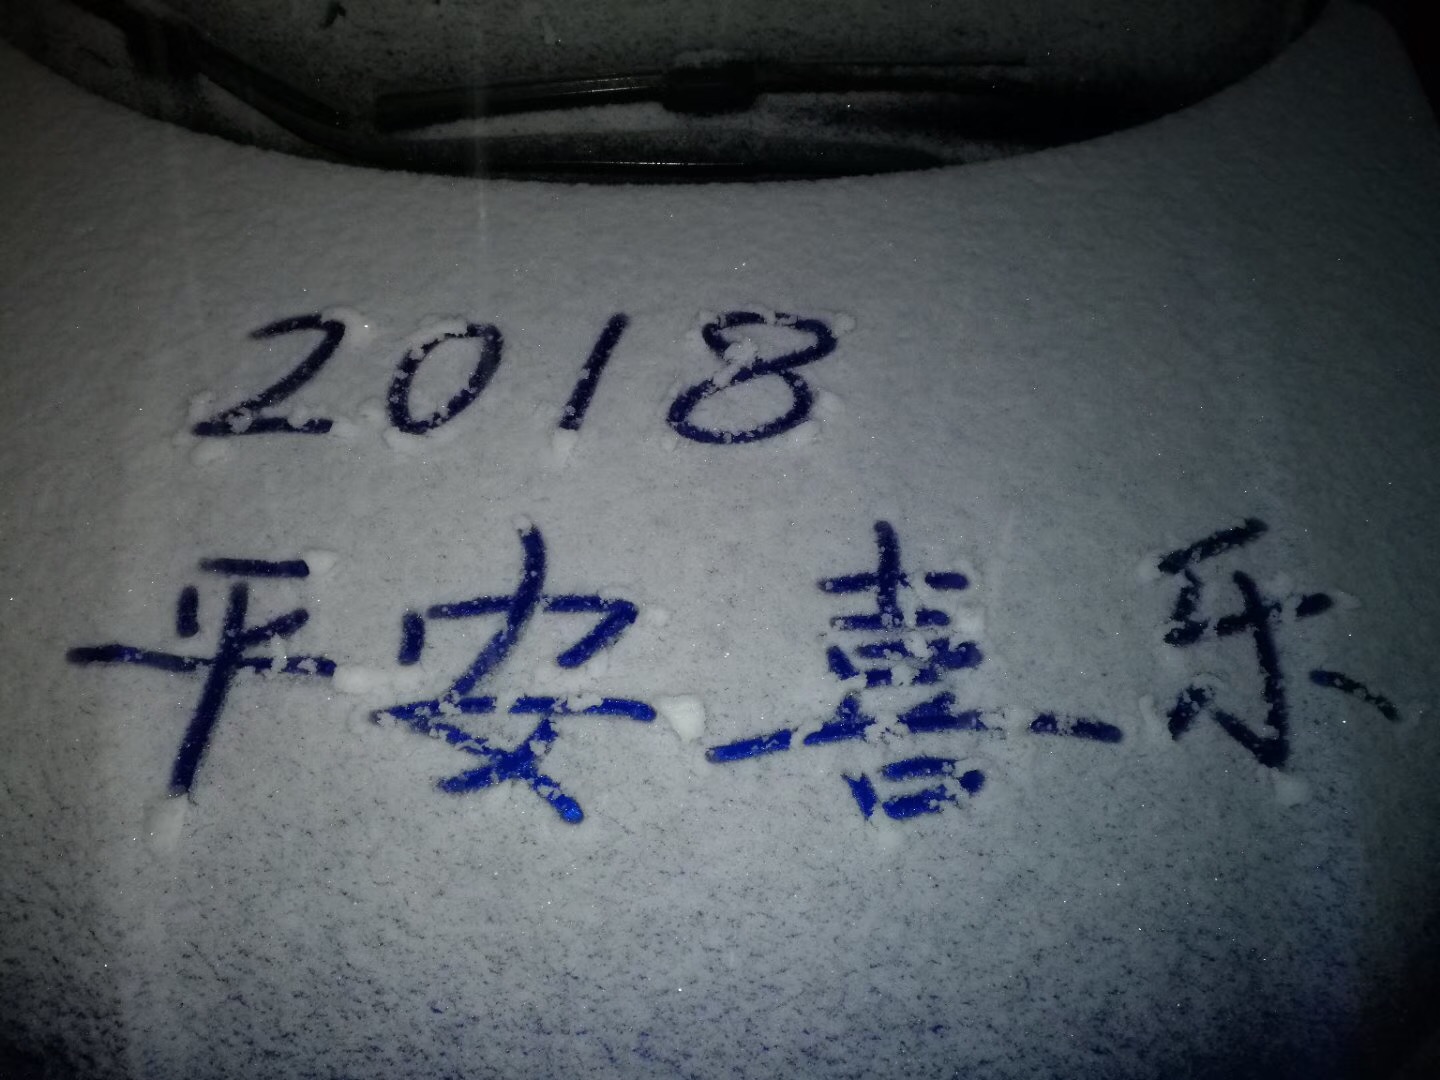 2018
平安喜乐